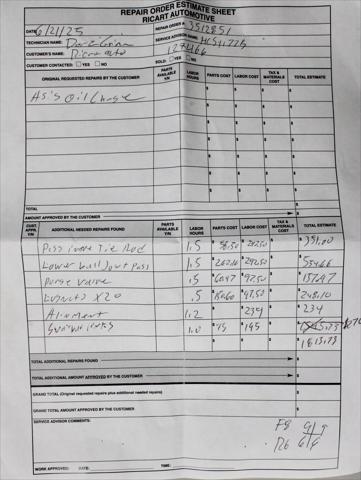 REPAIR ORDER ESTIMATE SHEET
RICART AUTOMOTIVE
DATE: 6/21/25 REPAIR ORDER #: 3512851
TECHNICIAN NAME: SERVICE ADVISOR NAME:
CUSTOMER'S NAME: 127466
CUSTOMER CONTACTED: YES NO SOLD: YES NO
ORIGINAL REQUESTED REPAIRS BY THE CUSTOMER PARTS AVAILABLE Y/N LABOR HOURS PARTS COST LABOR COST TAX & MATERIALS COST TOTAL ESTIMATE
Oil Change
TOTAL
AMOUNT APPROVED BY THE CUSTOMER
CUST. APPR. Y/N ADDITIONAL NEEDED REPAIRS FOUND PARTS AVAILABLE Y/N LABOR HOURS PARTS COST LABOR COST TAX & MATERIALS COST TOTAL ESTIMATE
Pass inner Tie Rod 1.5 $ 58.50 $ 292.50 $ $ 351.00
Lower ball Joint pass 1.5 $ 292.50 $ $
Purge valve .5 $ 60.47 $ 97.50 $ $ 157.97
Lugnuts X20 .5 $ 150.60 $ 97.50 $ $ 248.10
Alignment 1.2 $ $ 234 $ $ 234
1.0 $ 75 $ 195 $ $
$ $ $ $ 1813.73
TOTAL ADDITIONAL REPAIRS FOUND $
TOTAL ADDITIONAL AMOUNT APPROVED BY THE CUSTOMER $
GRAND TOTAL (Original requested repairs plus additional needed repairs) $
GRAND TOTAL AMOUNT APPROVED BY THE CUSTOMER $
SERVICE ADVISOR COMMENTS:
WORK APPROVED: DATE: TIME: